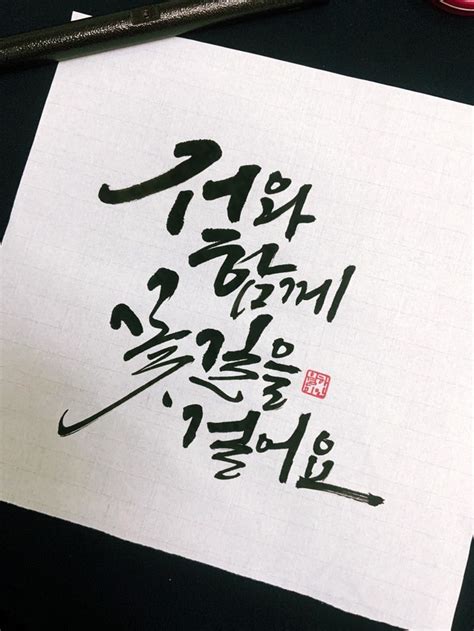 저와
함께
꽃길을
걸어요